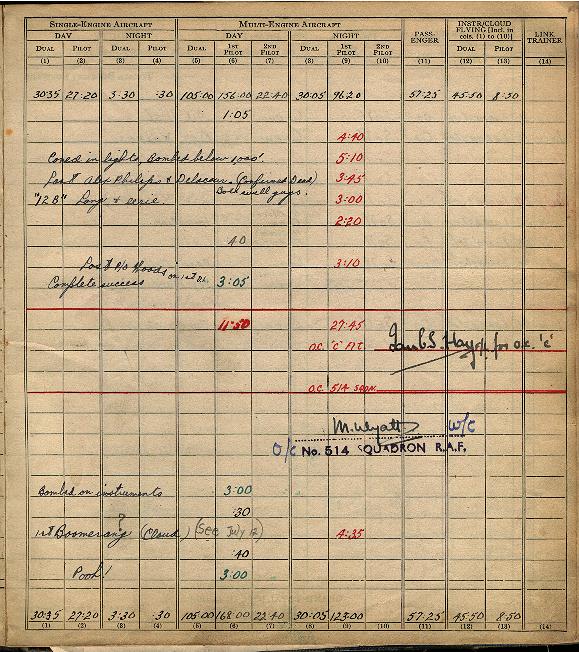 SINGLE-ENGINE AIRCRAFT MULTI-ENGINE AIRCRAFT PASS-ENGER INSTR/CLOUD FLYING [Incl. in cols. (1) to (10)] LINK TRAINER
DAY NIGHT DAY NIGHT
DUAL PILOT DUAL PILOT DUAL 1ST PILOT 2ND PILOT DUAL 1ST PILOT 2ND PILOT DUAL PILOT
(1) (2) (3) (4) (5) (6) (7) (8) (9) (10) (11) (12) (13) (14)
30.35 27.20 3.30 .30 105.00 156.00 22.40 30.05 96.20 57.25 45.50 8.50
1:05
4:40
Coned in lights, Bombed below 1,000'. 5:10
Lost Alex Philips & Delacour. (Confirmed Dead) 3:45
Both swell guys.
"12 B" Long & eerie. 3:00
2:20
40
Lost P/O Hoods on 1st Op. 3:10
Complete success 3:05
11:50 27:45
O.C. 'C' FLT. for O.C. 'C'
O.C. 514 SQDN.
M. Wyatt W/C
O/C No. 514 SQUADRON R.A.F.
Bombed on instruments 3:00
:30
?
1st Boomerang (Cloud) (See July 12) 4:35
:40
Pooh! 3:00
30.35 27.20 3.30 .30 105.00 168.00 22.40 30.05 123.00 57.25 45.50 8.50
(1) (2) (3) (4) (5) (6) (7) (8) (9) (10) (11) (12) (13) (14)